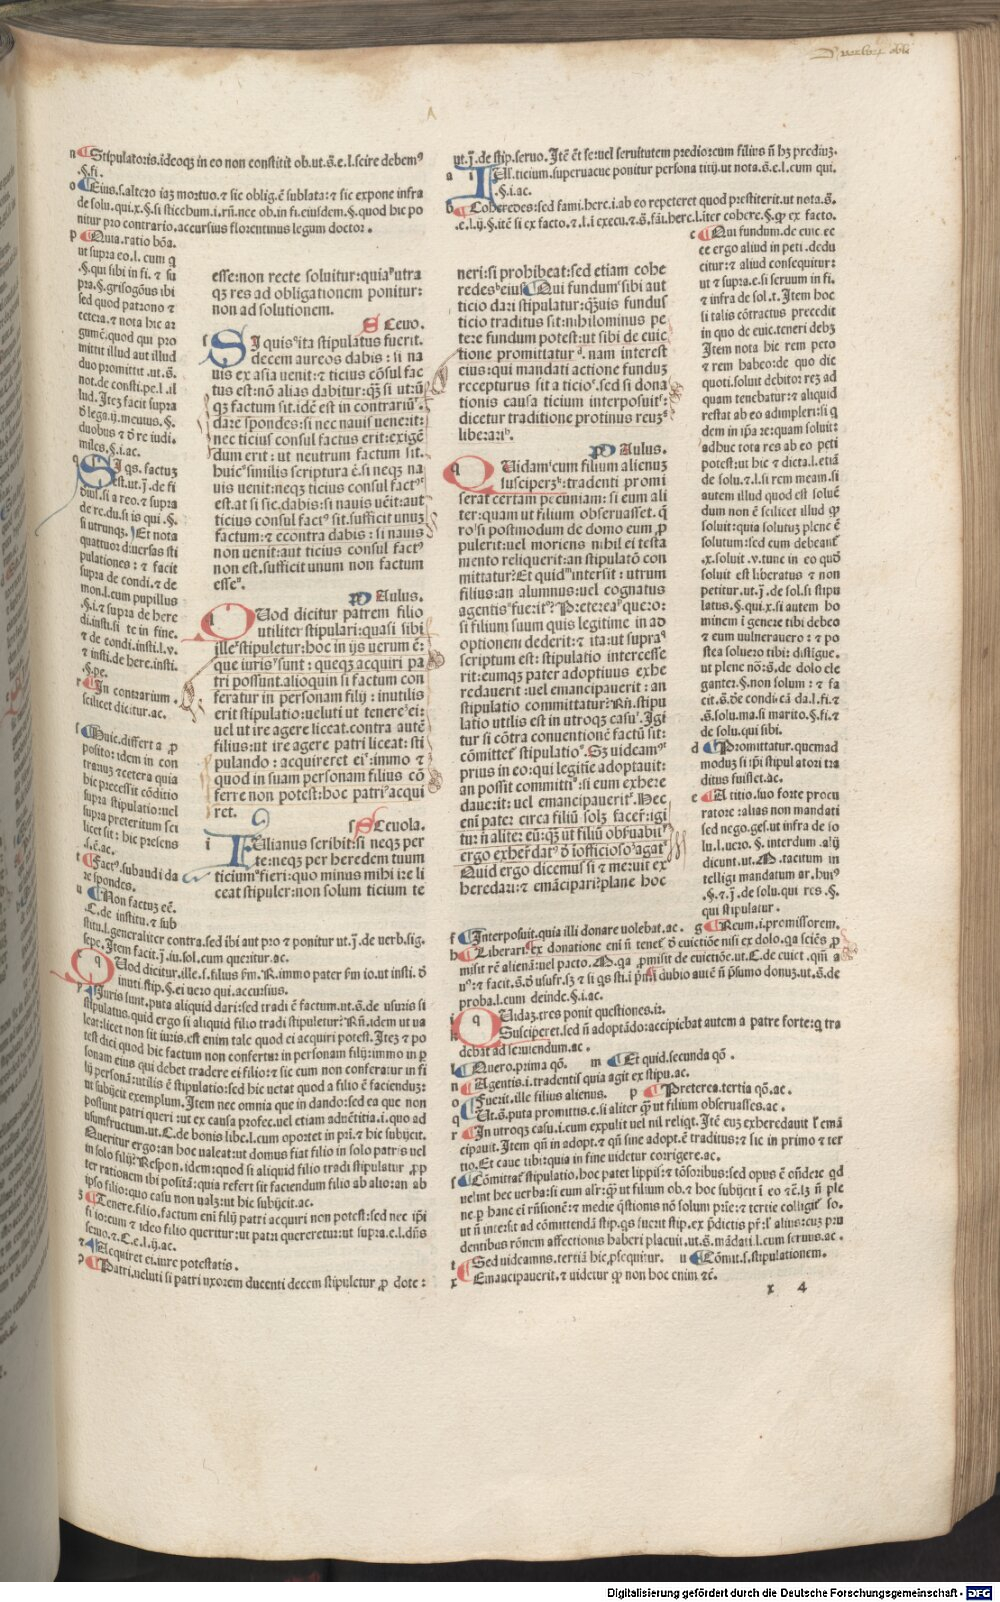 n Stipulatoris.ideoqꝫ in eo non constitit ob.ut.s̄.e.l.scire debemꝰ
.§.fi.
o Eius.s.altero iaꝫ mortuo.⁊ sic oblig.ē sublata:⁊ sic expone infra
de solu.qui.x.§.si stichum.i.rn̄.nec ob.in fi.eiusdem.§.quod hic po
nitur pro contrario.accursius florentinus legum doctor.
p Quia.ratio bōa.
ut supra eo.l. cum q
.§.qui sibi in fi.⁊ su
pra.§.grisogōus ibi
sed quod patrono ⁊
cetera.⁊ nota hic ar
gumē.quod qui pro
mittit illud aut illud
duo promittit .ut.s̄.
not.de consti.pe.l.il
lud. Iteꝫ facit supra
miles.§.i.ac.
q SI qs.factuꝫ
est.ut.j̄.de fi
diui.si a reo.⁊ supra
de re.du.si is qui .§.
si utrunqꝫ. Et nota
quattuor diuersas sti
pulationes: ⁊ facit
supra de condi.⁊ de
mon.l.cum pupillus
.§.i.⁊ supra de here
di.insti.si te in fine.
⁊ de condi.insti.l.v.
⁊ insti.de here.insti.
.§.pe.
r In contrarium.
scilicet dicitur.ac.
s Huic.differt a p̄
posito:idem in con
trariuꝫ ⁊cetera quia
hic precessit cōditio
supra stipulatio:uel
supra preteritum sci
licet sit: hic presens
.s.ē.ac.
t Factꝰ.subaudi da
re spondes.
u Non factuꝫ eē.
.C.de institu.⁊ sub
stitu.l.generaliter contra.sed ibi aut pro ⁊ ponitur ut.j̄.de uerb.sig.
sepe.Item facit.j̄.iu.sol.cum queritur.ac.
q QUod dicitur.ille.s.filius fm̄.R.immo pater fm̄ io.ut insti.ꝺ̄
inuti.stip.§.ei uero qui.accursius.
Iuris sunt.puta aliquid dari:sed tradi ē factum.ut.s̄.de usuris si
stipulatus.quid ergo si aliquid filio tradi stipuletur? Rn̄.idem ut ua
leat:licet non sit iuris.est enim tale quod ei acquiri potest. Iteꝫ ⁊ po
test dici quod hic factum non confertur in personam filij:immo in p̄
sonam eius qui debet tradere ei filio:⁊ sic cum non conferatur in fi
lij personā:utilis ē stipulatio:sed hic uetat quod a filio ē faciendum:
ut subijcit exemplum. Item nec omnia que in dando:sed ea que non
possunt patri queri :ut ex causa profec.uel etiam aduētitia.i.quo ad
usumfructum.ut.C.de bonis libe.l.cum oportet in pri.⁊ hic subijcit.
Queritur ergo:an hoc ualeat:ut domus fiat filio in solo patris uel
in solo filij? Respon.idem:quod si aliquid filio tradi stipulatur p̄p
ter rationem ibi positā:quia refert sit faciendum filio ab alio:an ab
ipso filio:quo casu non ualꝫ:ut hic subijcit.ac.
Tenere.filio.factum eni filij patri acquiri non potest:sed nec ip̄i
fi io:cum ⁊ ideo filio queritur:ut patri quereretur:ut supra.e.l.dn̄s
seruo.⁊.C.e.l.ij.ac.
⁊ Acquiret ei.iure potestatis.
Patri.ueluti si patri uxorem ducenti decem stipuletur p̄ dote:
esse:non recte soluitur:quiaᵖutra
qꝫ res ad obligationem ponitur:
non ad solutionem.
SCeuo.
SI quisᵠita stipulatus fuerit.
decem aureos dabis:si na
uis ex asia uenit:⁊ ticius cōsul fac
tus est:nō alias dabitur:qꝫ̄ si ut:ū
qꝫ factum sit.idē est in contrariūʳ.
dare spondes:si nec nauis uenerit:
nec ticius consul factus erit:exigē
dum erit: ut neutrum factum sit.
huicˢsimilis scriptura ē.si neqꝫ na
uis uenit:neqꝫ ticius consul factꝰᵗ
est.at si sic.dabis:si nauis uēit:aut
ticius consul factꝰ sit.sufficit unuꝫ
factum:⁊ econtra dabis:si nauis
non uenit:aut ticius consul factꝰ
non est.sufficit unum non factum
esseᵘ.
PAulus.
QUod dicitur patrem filio
utiliter stipulari:quasi sibi
ille stipuletur:hoc in ijs uerum ē:
que iuris sunt: queqꝫ acquiri pa
tri possunt.alioquin si factum con
feratur in personam filij: inutilis
erit stipulatio:ueluti ut tenere ei:
uel ut ire agere liceat.contra autē
filius:ut ire agere patri liceat: sti
pulando: acquireret ei:immo ⁊
quod in suam personam filius cō
ferre non potest:hoc patri acqui
ret.
SCeuola.
i IUlianus scribit:si neqꝫ per
te:neqꝫ per heredem tuum
ticium fieri:quo minus mihi ire li
ceat stipuler:non solum ticium te
ut.j̄.de stip.seruo. Itē ēt se:uel seruitutem prediorum filius n̄ hꝫ prediuꝫ.
a i TEI.ticium.superuacue ponitur persona titij.ut nota.s̄.e.l.cum qui.
.§.i.ac.
b Coheredes:sed fami.herc.i.ab eo repeteret quod prestiterit.ut nota.s̄.
.e.l.ij.§.itē si ex facto.⁊.l.i execu.⁊.s̄.fāi.herc.l.iter cohere.§.ꝙ ex facto.
neri:si prohibeat:sed etiam cohe
redesᵇeius. Qui fundumᶜsibi aut
ticio dari stipulatur:qꝫuis fundus
ticio traditus sit:nihilominus pe
tere fundum potest:ut sibi de euic
tione promittaturᵈ.nam interest
eius:qui mandati actione fundum
recepturus sit a ticioᵉ.sed si dona
tionis causa ticium interposuitᶠ:
dicetur traditione protinus reuꝫᵍ
liberariʰ.
PAulus.
q QUidamⁱcum filium alienuꝫ
susciperꝫᵏ:tradenti promi
serat certam pecuniam:si eum ali
ter:quam ut filium obseruasset.q̄
roˡsi postmodum de domo eum p̄
pulerit:uel moriens nihil ei testa
mento reliquerit:an stipulatō com
mittatur? Et quidᵐintersit: utrum
filius:an alumnus:uel cognatus
agentisⁿfueritᵒ? Preterea quero:
si filium suum quis legitime in ad
optionem dederit:⁊ ita:ut supra
scriptum est:stipulatio intercesse
rit:eumqꝫ pater adoptiuus exhe
redauerit:uel emancipauerit: an
stipulatio committatur? Rn̄.stipu
latio utilis est in utroqꝫ casuʳ.Igi
tur si cōtra conuentionē factū sit:
cōmittetˢ stipulatioˢ. Sꝫ uideamꝰᵗ
prius in eo:qui legitie adoptauit:
an possit committiᵘ:si eum exhere
dauerit:uel emancipaueritˣ.Hec
eni pater circa filiū solꝫ facer:igi
tur n̄ alit:e eū:qꝫ ut filiū obseruauit
ergo exherꝺatꝰ ꝺ̄ iofficioso agat
Quid ergo dicemus si ⁊ meruit ex
heredari:⁊ emācipari?plane hoc
c Qui fundum.de euic ec
ce ergo aliud in peti .dedu
citur:⁊ aliud consequitur:
ut ⁊ supra.e.si seruum in fi.
⁊ infra de sol.t.Item hoc
si talis cōtractus precedit
in quo de euic.teneri debꝫ
Item nota hic rem peto
⁊ rem habeo:de quo dic
quoti.solunt debitor reꝫ ad
quam tenebatur:⁊ aliquid
restat ab eo adimpleri:si q
dem in ip̄a re:quam soluit:
adhuc tota res ab eo peti
potest:ut hic ⁊ dicta.l.etiā
de solu.⁊.l.si rem meam.si
autem illud quod est soluē
dum non ē scilicet illud ꝙ
soluit:quia solutuꝫ plene ē
solutum:sed cum debeant
.x.soluit.v.tunc in eo quod
soluit est liberatus ⁊ non
petitur.ut.j̄.de sol.si stipu
latus.§.qui.x.si autem ho
minem i genere tibi debeo
⁊ eum uulnerauero: ⁊ po
stea soluero tibi:distīgue.
ut plene nō:s̄.de dolo ele
ganter.§.non solum:⁊ fa
cit.s̄.ꝺe condi cā da.l.fi.⁊
.s̄.solu.ma.si marito.§.fi.⁊
de solu.qui sibi.
d Promittatur.quemad
moduꝫ si ip̄i stipulatori tra
ditus fuisset.ac.
e A titio.suo forte procu
ratore:alias non mandati
sed nego.ges.ut infra de so
lu.l.uero. §. interdum .alij
dicunt.ut.M.tacitum in
telligi mandatum ar.huiꝰ
.§.⁊.j̄.de solu.qui res .§.
qui stipulatur.
f Interposuit.quia illi donare uolebat.ac. g Reum.i.promissorem.
h Liberari.ex donatione eni n̄ tenet ꝺ̄ euictiōe nisi ex dolo.qa sciēs p̄
misit rē alienā:uel pacto.M.qa p̄misit de euictiōe.ut.C.de euict.qm̄ a
nꝰ:⁊ facit.s̄.ꝺ̄ usufr.sꝫ ⁊ si qs sti.i prīn dubio aut ē n̄ p̄sumo donuꝫ.ut.s̄.de
proba.l.cum deinde.§.i.ac.
i QUidaꝫ.tres ponit questiones.iꝛ.
k Susciperet.sed n̄ adoptādo:accipiebat autem a patre forte:q̄ tra
debat ad seruiendum.ac.
l Quero.prima qō. m Et quid.secunda qō.
n Agentis.i.tradentis quia agit ex stipu.ac.
o Fuerit.ille filius alienus. p Preterea.tertia qō.ac.
q Ut.s̄.puta promittis.c.si aliter qꝫ ut filium obseruasses.ac.
r In utroqꝫ casu.i.cum expulit uel nil reliqt. Itē euꝫ exheredauit ł emā
cipauit.Item qn̄ in adopt.⁊ qn̄ sine adopt.ē traditus:⁊ sic in primo ⁊ ter
tio.Et caue tibi:quia in fine uidetur corrigere.ac.
s Cōmittat stipulatio.hoc patet lippis:⁊ tōsoribus:sed opus ē oñdere qd
uelint hec uerba:si eum alr:ꝙ̄ ut filium ob.⁊ hoc subijcit i eo ⁊ē.lꝫ n̄ ple
ne p̄ hanc ei rn̄sionē:⁊ medie q̄stionis nō solum prie:⁊ tertie colligit so.
ut n̄ intersit ad cōmittendā stip.qs fuerit stip.ex p̄dictis pr̄:ł alius:cuꝫ pru
dentibus rōnem affectionis haberi placuit.ut.s̄.mādati.l.cum seruus.ac.
t Sed uideamus.tertiā hic p̄sequitur. u Cōmit.s.stipulationem.
x Emancipauerit.⁊ uidetur ꝙ non hoc enim ⁊ē.
x 4
Digitalisierung gefördert durch die Deutsche Forschungsgemeinschaft - DFG